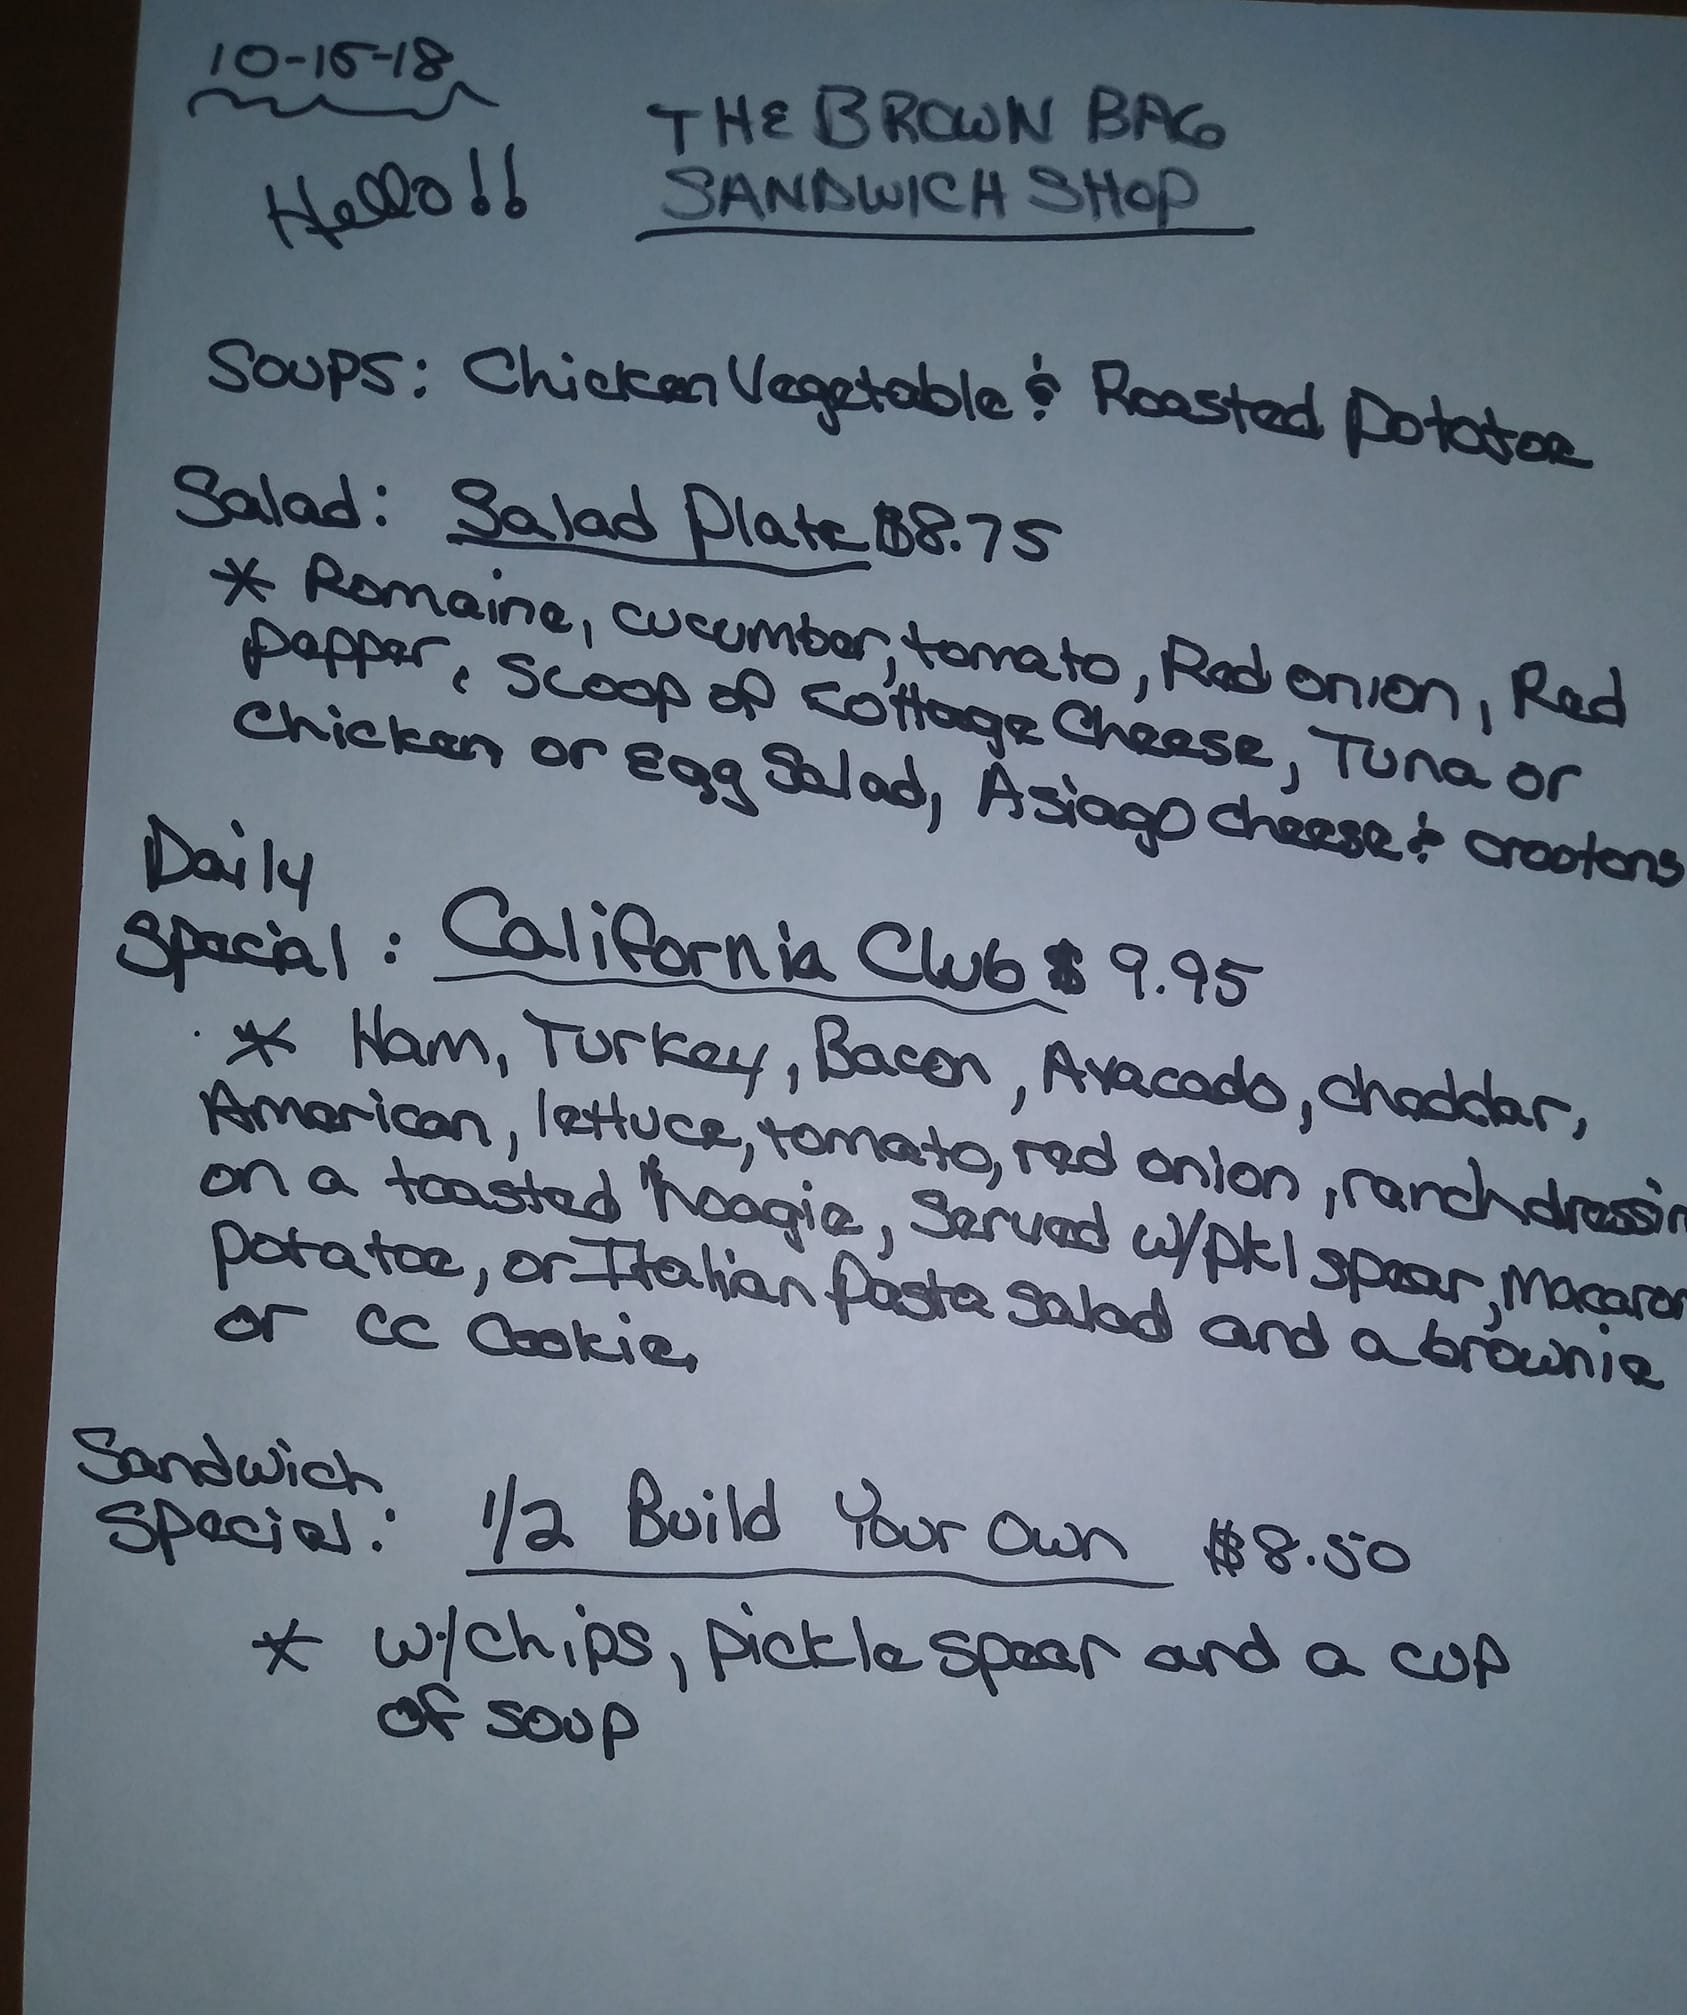 10-15-18
THE BROWN BAG
Hello!!
SANDWICH SHOP
Soups: Chicken Vegetable & Roasted Potatoe
Salad: Salad Plate $8.75
* Romaine, cucumber, tomato, Red onion, Red
Pepper, Scoop of Cottage Cheese, Tuna or
Chicken or Egg Salad, Asiago cheese & crootons
Daily
Special: California Club $9.95
* Ham, Turkey, Bacon, Avacado, cheddar,
American, lettuce, tomato, red onion, ranch dressin
on a toasted hoagie, Served w/pkl spear, Macaron
Potatoe, or Italian Pasta Salad and a brownie
or CC Cookie.
Sandwich
Special: 1/2 Build Your Own $8.50
* w/chips, pickle spear and a cup
of soup